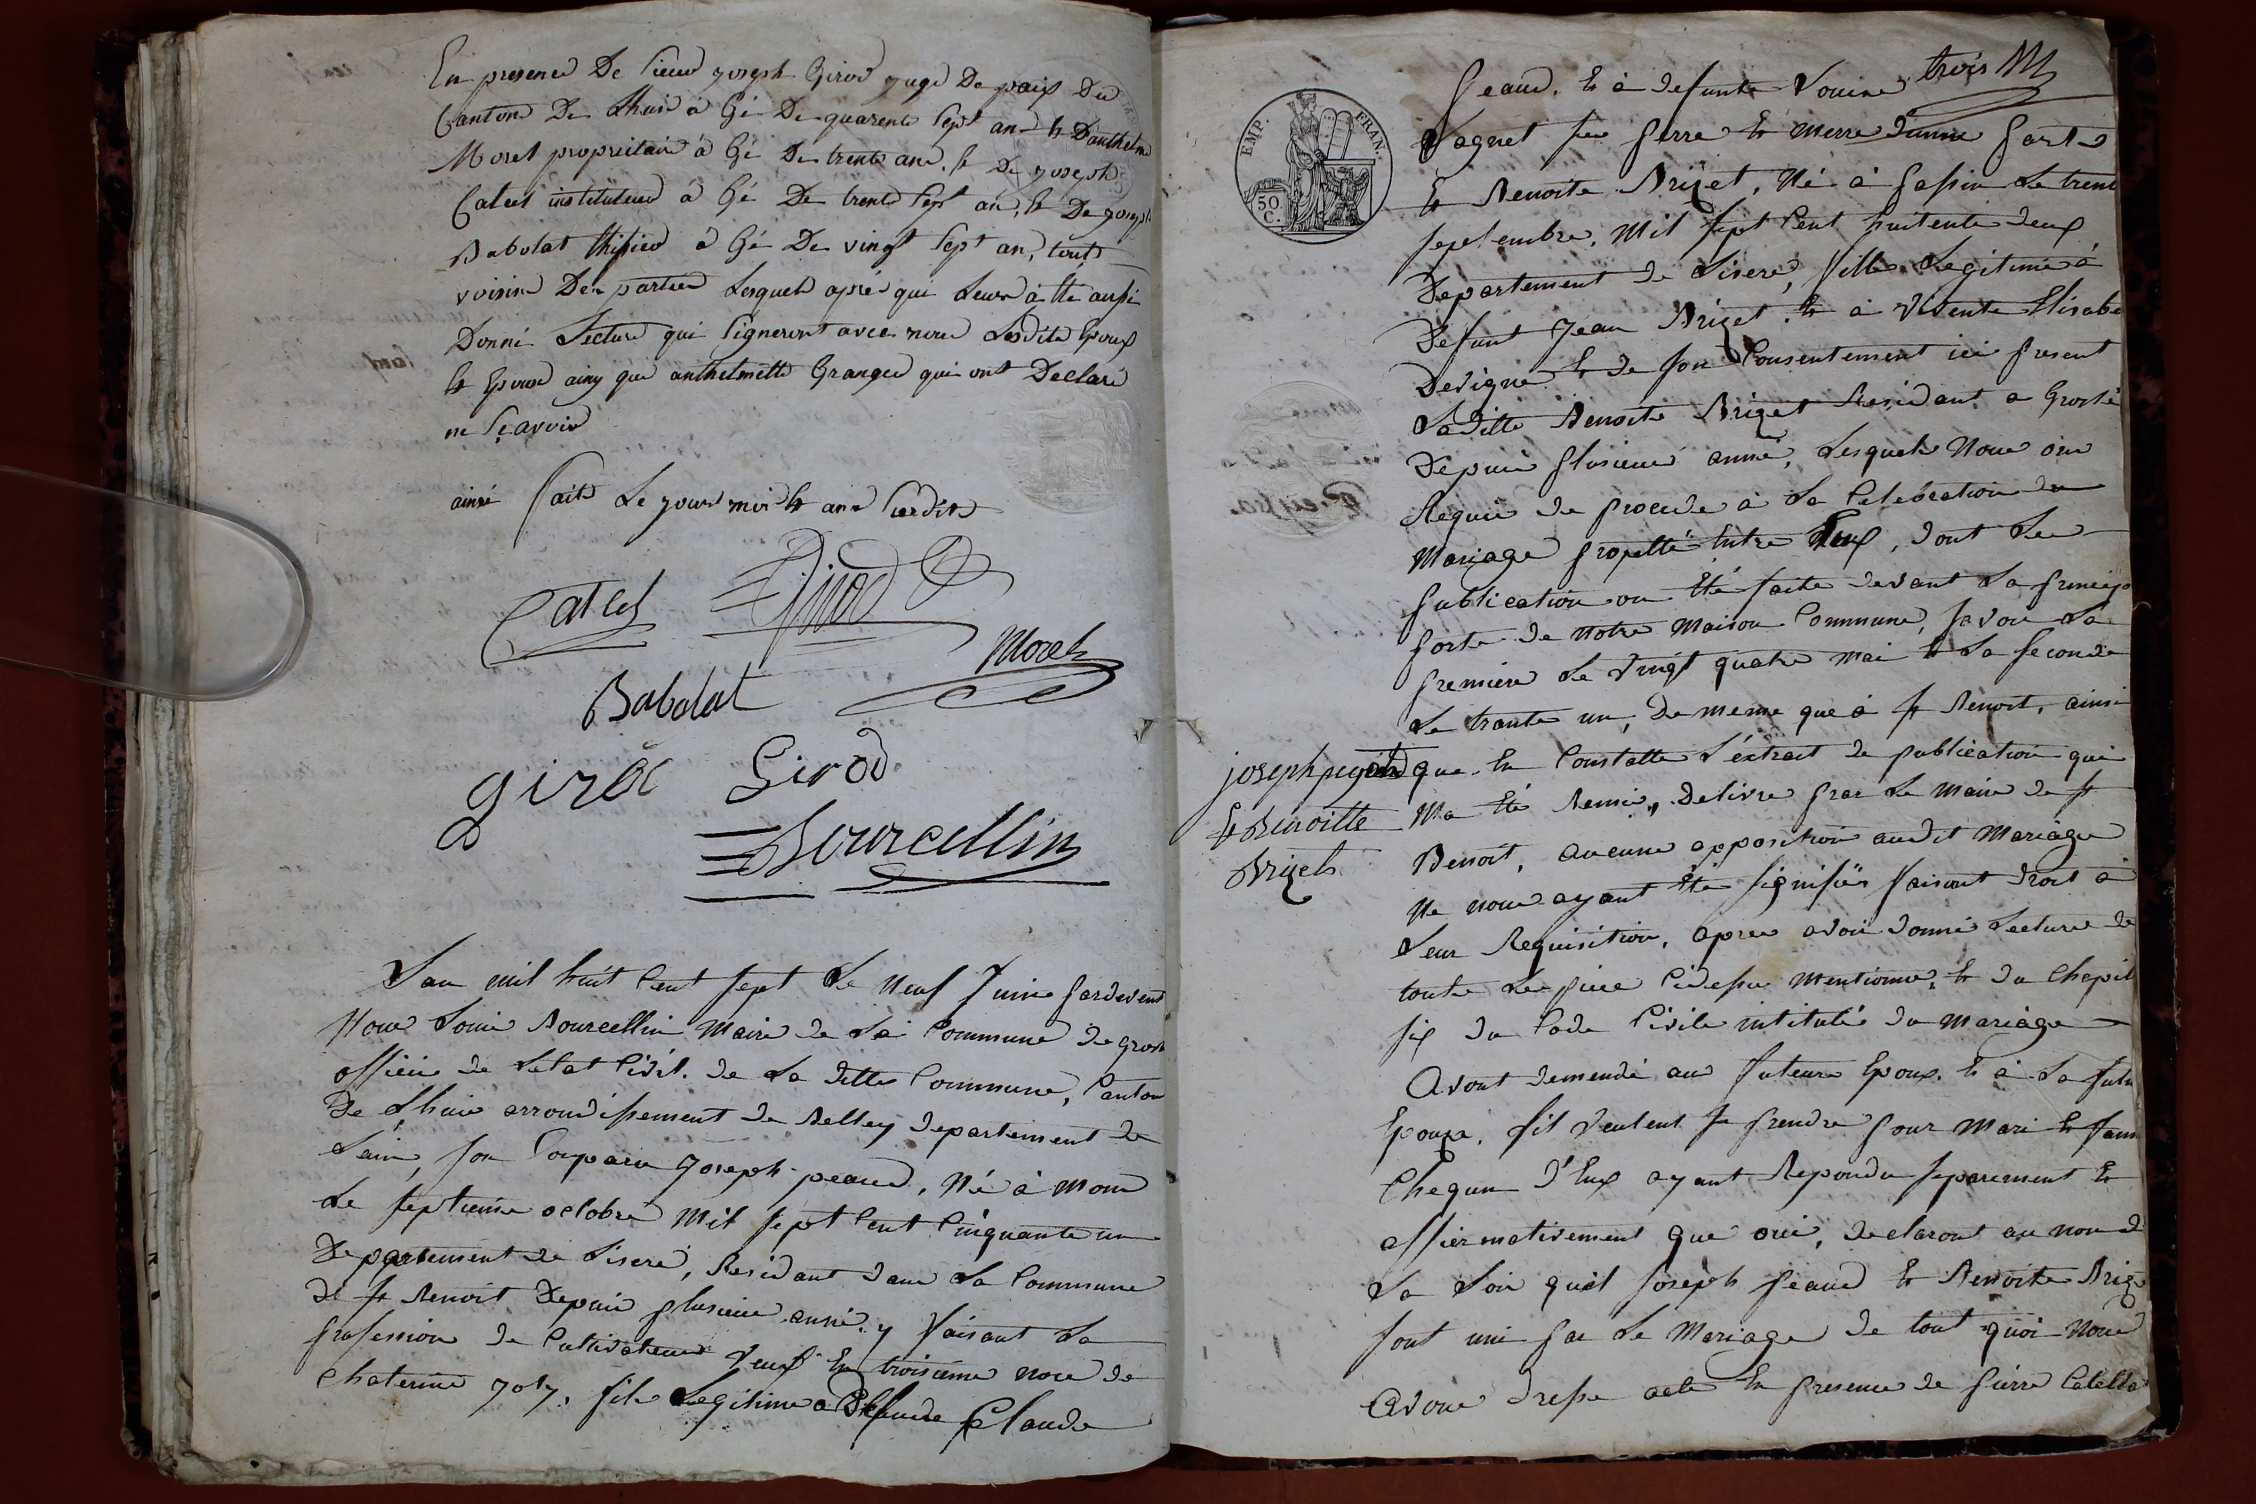 En presence De Sieur joseph Girod juge De paix Du
Canton De Lhuis agé De quarente sept ans & Danthelme
Morel proprietaire agé De trente ans, & De joseph
Catcel instituteur agé De trente sept ans, & De joseph
Babolat agé De vingt sept ans, tout
voisins Des parties Lesquels aprés qui Leurs a été aussi
Donné Lecture qui Signeront avec nous Lesdits Epoux
& Epouse ainsy que anthelmette Granger qui ont Declaré
ne Sçavoir
ainsi fait Le jour mois & ans susdits
Catcel Girod
Morel
Babolat
girod Girod
Bourcellin
L'an mil huit Cent sept Le neuf Juins pardevent
Nous Louis Bourcellin Maire de La Commune de grosl
officier de Letat Civil de La ditte Commune, Canton
De Lhuis arrondissement de Belley departement de
Lain, son Comparu Joseph peaud, Né à
Le septieme octobre Mil sept Cent Cinquante un
Departement de Lisere, Residant dans La Commune
de st Benoit Depuis plusieurs année, y faisant La
profession de Cultivateur Veuf En troisieme noce de
Chaterine joly, fils Legitime a Claude
trois
peaud, & à defunte Louise
Vagnet ses perre & merre d'unne parts
& Benoite Brizet, Née à passin Le trente
septembre, Mil sept Cent huitente deux
Departement de Lisere, fille Legitime à
Defunt Jean Brizet & à Vivente Elisabe
Devigne & de son Consentement ici present
Laditte Benoite Brizet Residant a Groslé
Depuis plusieurs année, Lesquels Nous on
Requis de procede à La Celebration du
Mariage projetté Entre Eux, dont Les
publication on été faite devant La princip
porte de notre Maison Commune, savoir La
premiere Le Vingt quatre mai & La seconde
Le trante un, De meme que à st Benoit, ainsi
joseph peaud
& Benoitte
Brizet
que En Constatte L'éxtrait de publication qui
Ma été Remis, delivre par Le maire de st
Benoit, aucune opposition audit Mariage
Ne nous ayant été signifiés faisant droit a
Leur Requisition, apres avoir donné Lecture de
toute Les piece Cidessus Mentionné, & du Chapit
six du Code Civile intitulé du Mariage
Avont demendé au future Epoux & à La futu
Epouse, s'il veulent se prendre pour Mari & fam
Chequn d'Eux ayant Repondu separement &
affiermativement que oui, declaront au nom d
La Loi quil Joseph peaud & Benoite Briz
sont uni par Le Mariage de tout quoi Nous
Avons dresse acte En presence de pierre
EMP. FRAN.
50 C.